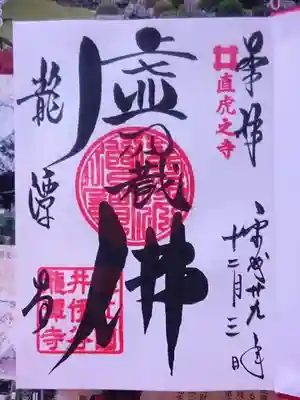 奉拝
平成廿九年
十二月三日
直虎之寺
虚空蔵
佛
龍潭寺
井伊谷
龍潭寺